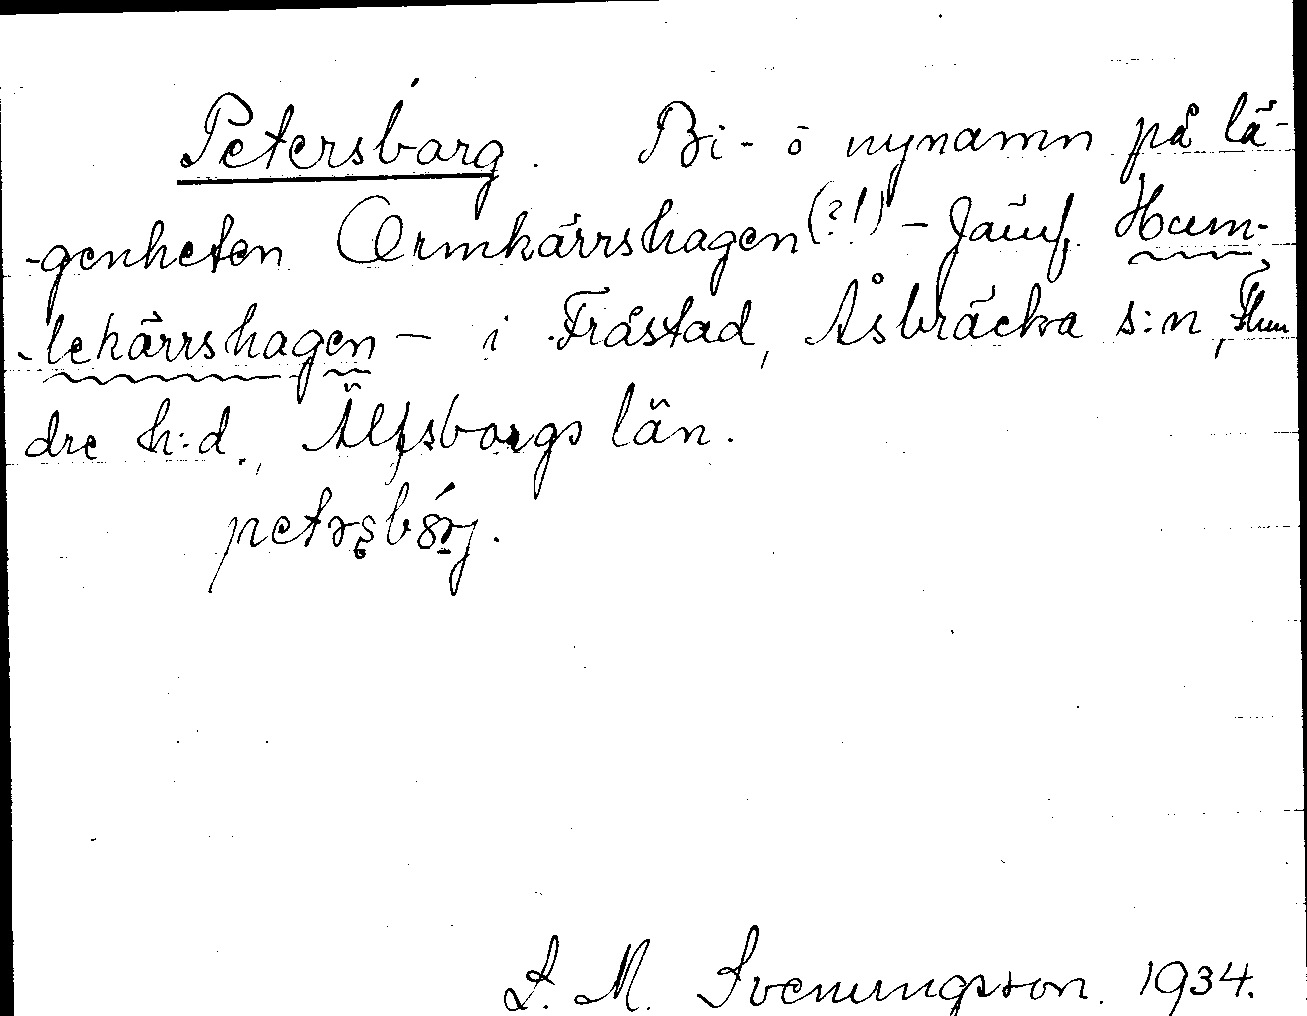 Petersbarg. Bi- o nynamn på lä-
-genheten Ormkärrshagen (?!) - Jämf. Hum-
-lekärrshagen - i Fråstad, Åsbräcka s:n, Flun
dre h:d., Älfsborgs län.
S. M. Svenungsson. 1934.